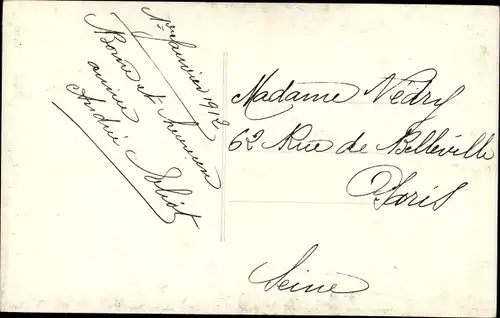 1er Janvier 1912
Bonne et heureuse
année
André Joliot
Madame Védry
62 Rue de Belleville
Paris
Seine